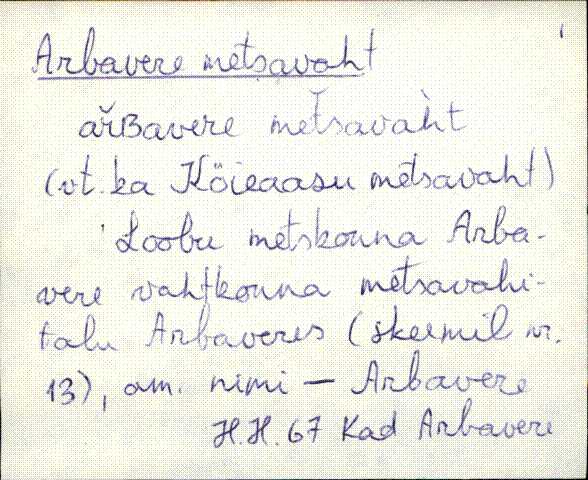 Arbavere metsavaht
ařʙavere metsavaht
(vt. ka Kõieaasu metsavaht)
Loobu metskonna Arba-
vere vahtkonna metsavahi-
talu Arbaveres (skeemil nr.
13), am. nimi — Arbavere
H.H. 67 Kad Arbavere